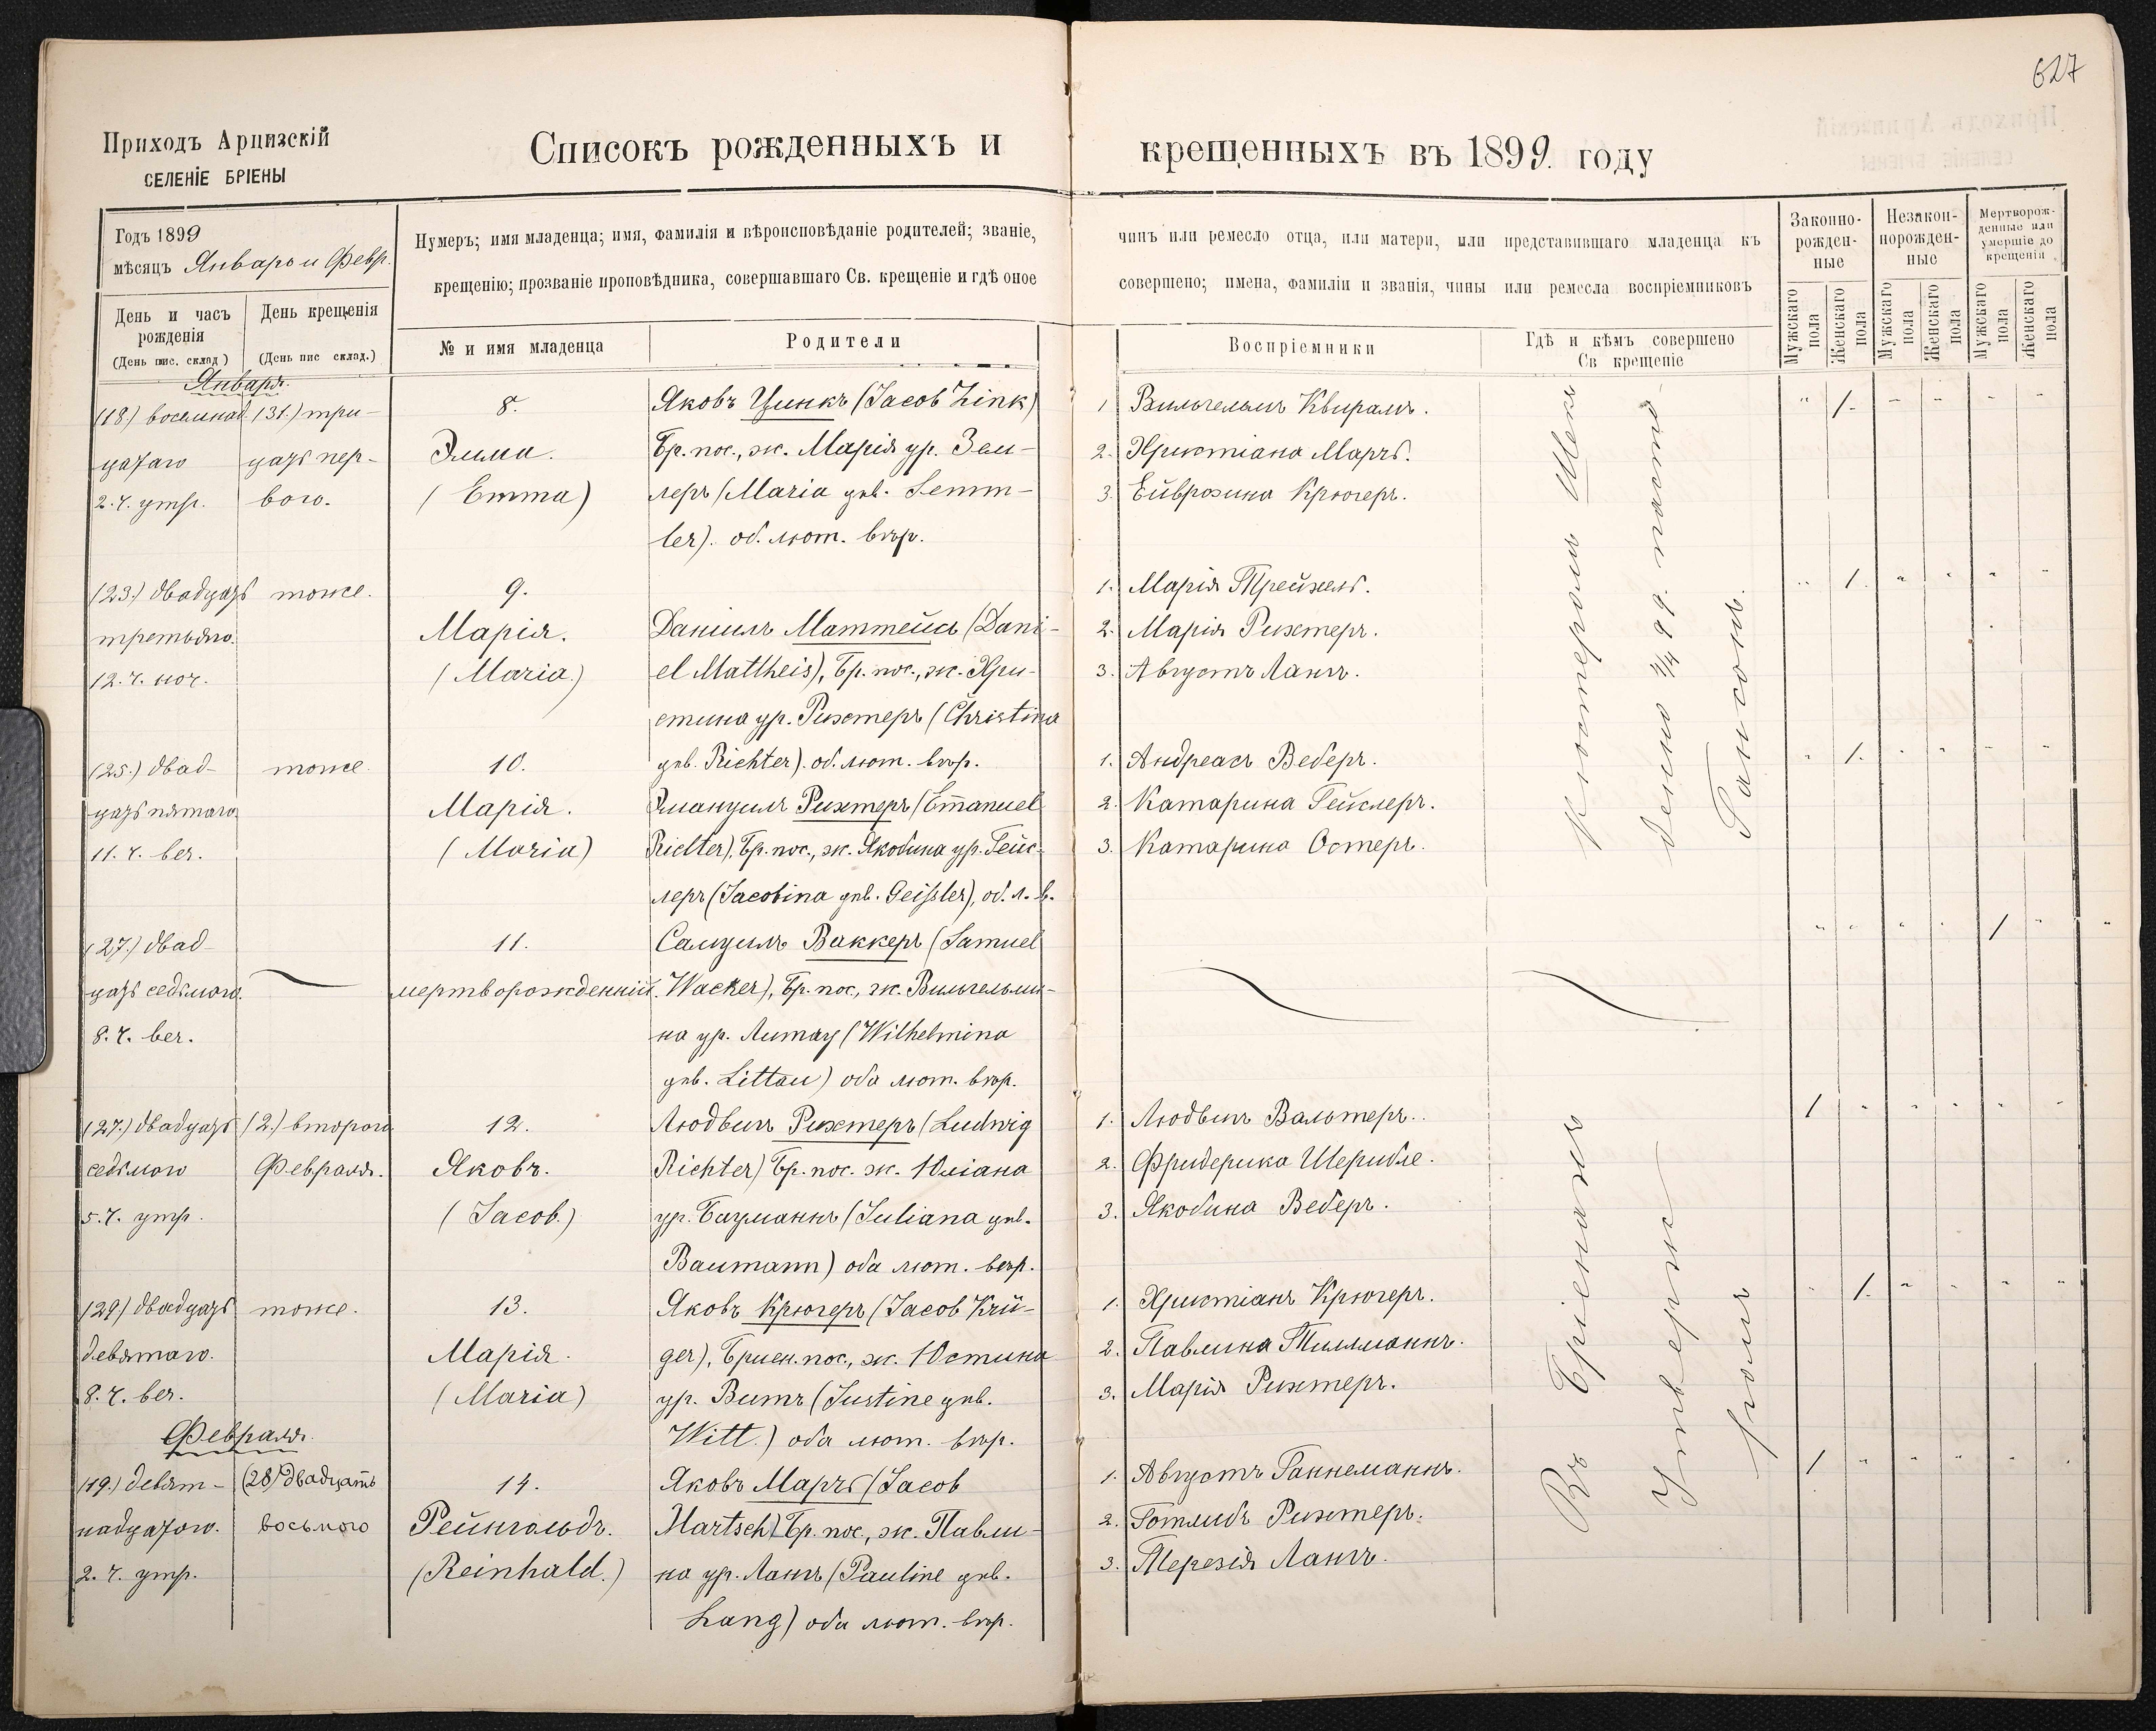 627
Приходъ Арцизскій
СЕЛЕНІЕ БРІЕНЫ
Списокъ рожденныхъ и крещенныхъ въ 1899. году
Годъ 1899
мѣсяцъ Январь и Февр.
День и часъ рожденія
(День пис. склад.)
День крещенія
(День пис склад.)
Нумеръ; имя младенца; имя, фамилія и вѣроисповѣданіе родителей; званіе,
крещенію; прозваніе проповѣдника, совершавшаго Св. крещеніе и гдѣ оное
№ и имя младенца
Родители
чинъ или ремесло отца, или матери, или представившаго младенца къ
совершено; имена, фамиліи и званія, чины или ремесла воспріемниковъ
Воспріемники
Гдѣ и кѣмъ совершено
Св крещеніе
Законно-
рожден-
ные
Незакон-
норожден-
ные
Мертворож-
денные или
умершіе до
крещенія
Мужскаго пола
Женскаго пола
Мужскаго пола
Женскаго пола
Мужскаго пола
Женскаго пола
Января.
(18.) восемнад-
цатаго
2. ч. утр.
(31.) три-
цать пер-
вого.
8.
Эмма.
(Emma)
Яковъ Цинкъ (Jacob Zink)
Бр. пос., ж. Марія ур. Зем-
леръ (Maria урв. Semm-
ler). об. лют. вѣр.
1. Вильгельмъ Квирамъ.
2. Христіана Марчъ.
3. Ейврозина Крюгеръ.
1.
(23.) двадцать
третьяго.
12. ч. ноч.
тоже.
9.
Марія.
(Maria.)
Даніилъ Маттейсъ (Dani-
el Mattheis), Бр. пос., ж. Хри-
стина ур. Рихтеръ (Christina
урв. Richter). об. лют. вѣр.
1. Марія Трейхель.
2. Марія Рихтеръ.
3. Августъ Лангъ.
1.
(25.) двад-
цать пятаго.
11. ч. веч.
тоже.
10.
Марія.
(Maria)
Эмануилъ Рихтеръ (Emanuel
Richter), Бр. пос., ж. Якобина ур. Гейс-
леръ (Jacobina урв. Geißler), об. л. в.
1. Андреасъ Веберъ.
2. Катарина Гейслеръ.
3. Катарина Остеръ.
1.
(27.) двад-
цать седьмого.
8. ч. веч.
11.
мертворожденный.
Самуилъ Ваккеръ (Samuel
Wacker), Бр. пос., ж. Вильгельми-
на ур. Литау (Wilhelmina
урв. Littau) оба лют. вѣр.
1
(27.) двадцать
седьмого
5. ч. утр.
(2.) второго
Февраля.
12.
Яковъ.
(Jacob.)
Людвигъ Рихтеръ (Ludwig
Richter) Бр. пос. ж. Юліана
ур. Бауманнъ (Juliana урв.
Baumann) оба лют. вѣр.
1. Людвигъ Вальтеръ.
2. Фридерика Шерибле.
3. Якобина Веберъ.
1
(29) двадцать
девятаго.
8. ч. веч.
тоже.
13.
Марія.
(Maria)
Яковъ Крюгеръ (Jacob Krü-
ger), Бриен. пос., ж. Юстина
ур. Витъ (Justine урв.
Witt.) оба лют. вѣр.
1. Христіанъ Крюгеръ.
2. Павлина Тиллманнъ.
3. Марія Рихтеръ.
1.
Февраля.
(19.) девят-
надцатого.
2. ч. утр.
(28) двадцать
восьмого
14.
Рейнгольдъ.
(Reinhald.)
Яковъ Марчъ (Jacob
Martsch) Бр. пос., ж. Павли-
на ур. Лангъ (Pauline урв.
Lang) оба лют. вѣр.
1. Августъ Ганнеманнъ.
2. Готлибъ Рихтеръ.
3. Терезія Лангъ.
1
Въ Бріенахъ Кюстеромъ